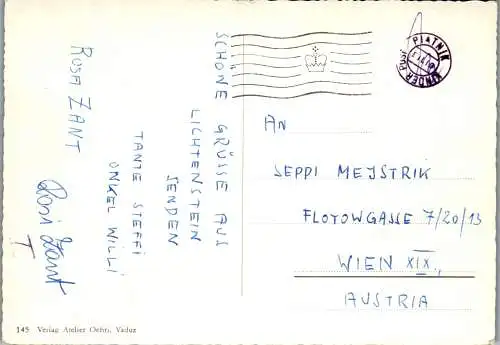 SCHÖNE GRÜSSE AUS
LICHTENSTEIN
SENDEN
TANTE STEFFI
ONKEL WILLI
ROSA ZANT
Rosi Zant
T
PIATNIK
KINDER POST
AN
SEPPI MEJSTRIK
FLOTOWGASSE 7/20/13
WIEN XIX.,
AUSTRIA
145 Verlag Atelier Oehri, Vaduz